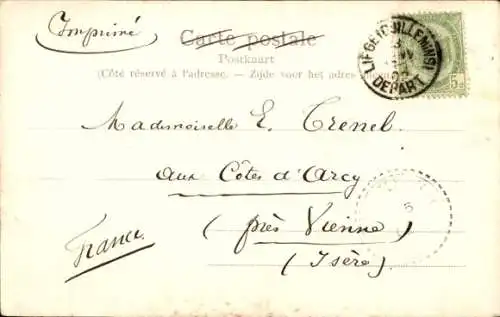 Imprimé
Carte postale
Postkaart
(Côté réservé à l'adresse. — Zijde voor het adres
LIÉGE (GUILLEMINS)
DÉPART
5
Mademoiselle E. Trenel
aux Côtes d'Arcy
(près Vienne)
(Isère)
France.
5